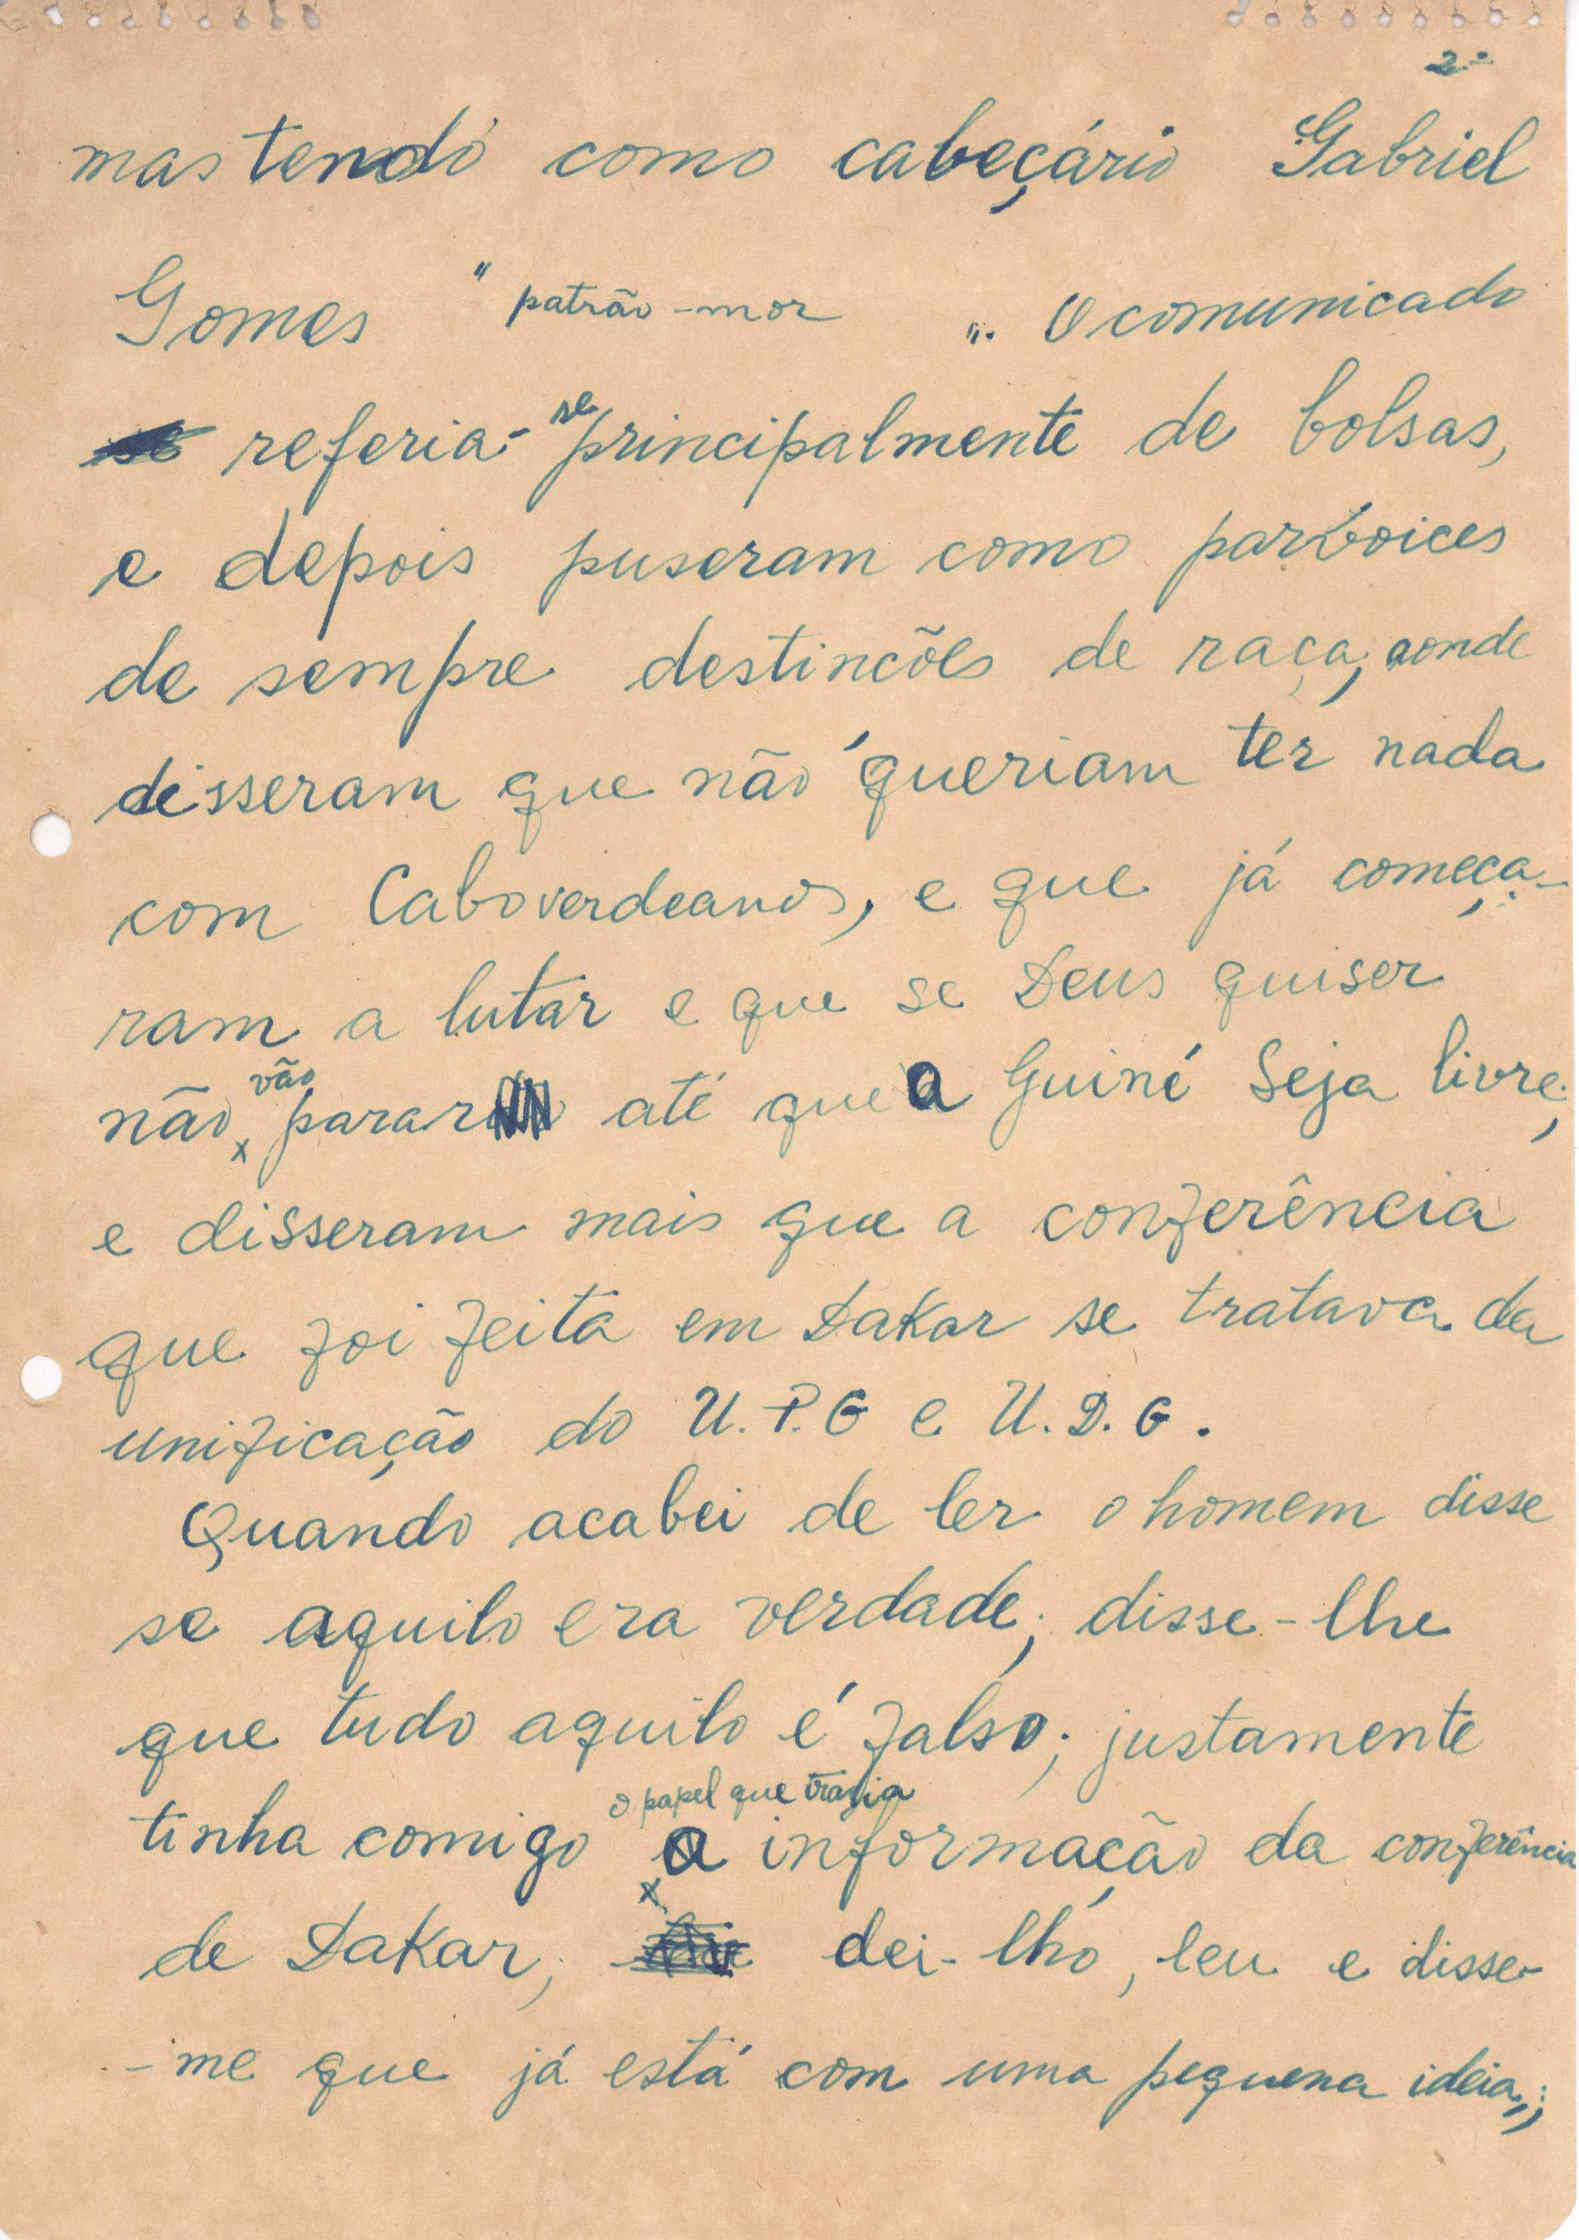 2.-
mas tendo como cabeçário Gabriel
Gomes " patrão-mor ". O comunicado
referia-se principalmente de bolsas,
e depois puseram como parvoices
de sempre destincões de raça, aonde
disseram que não queriam ter nada
com Caboverdeanos, e que já começa-
ram a lutar e que se Deus quiser
não vão parar até que a Guiné Seja livre,
e disseram mais que a conferência
que foi feita em Dakar se tratava da
unificação do U.P.G e U.D.G.
Quando acabei de ler o homem disse
se aquilo era verdade; disse-lhe
que tudo aquilo é falso; justamente
tinha comigo o papel que trazia a informação da conferência
de Dakar; dei-lho, leu e disse-
-me que já está com uma pequena ideia;